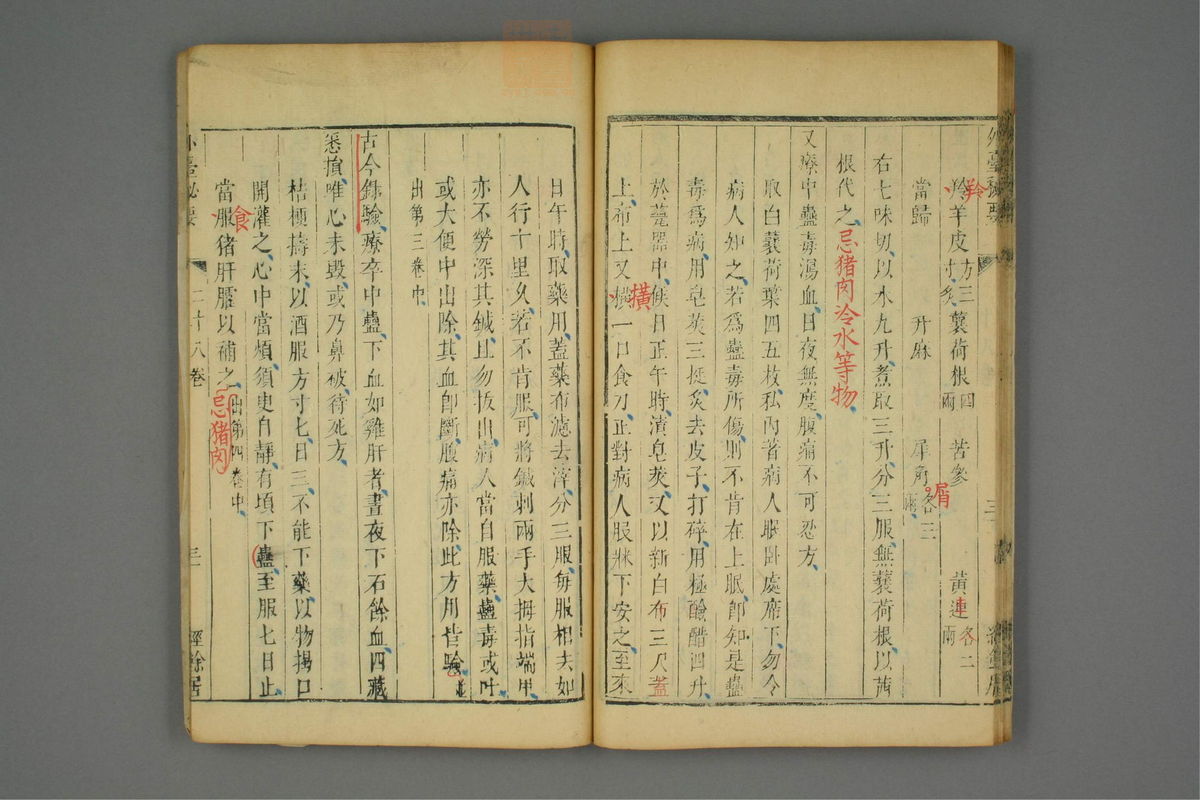 外臺秘要
羚
羖羊皮方三寸炙 蘘荷根四兩 苦參 黃連各二兩
當歸 升麻 犀角各二兩
屑
右七味切以水九升煮取三升分三服無蘘荷根以茜
根代之忌猪肉冷水等物
又療中蠱毒瀉血日夜無度腹痛不可忍方
取白蘘荷葉四五枚私內著病人眠臥處席下勿令
病人知之若爲蠱毒所傷則不肯在上眠卽知是蠱
毒爲病用皂莢三挺炙去皮子打碎用極酸醋四升
於甕器中候日正午時漬皂莢又以新白布三尺蓋
上布上又橫一口食刀正對病人眼牀下安之至來
橫
日午時取藥用蓋藥布濾去滓分三服每服相去如
人行十里久若不肯服可將鍼刺兩手大拇指端甲
亦不勞深其鍼且勿拔出病人當自服藥蠱毒或吐
或大便中出除其血卽斷腹痛亦除此方用皆驗並
出第三卷中
古今錄驗療卒中蠱下血如雞肝者晝夜下石餘血四藏
悉損唯心未毀或乃鼻破待死方
桔梗擣末以酒服方寸匕日三不能下藥以物揭口
開灌之心中當煩須臾自靜有頃下蠱至服七日止
食
當服猪肝臛以補之出第四卷中
忌猪肉
二十八卷
三
經餘居